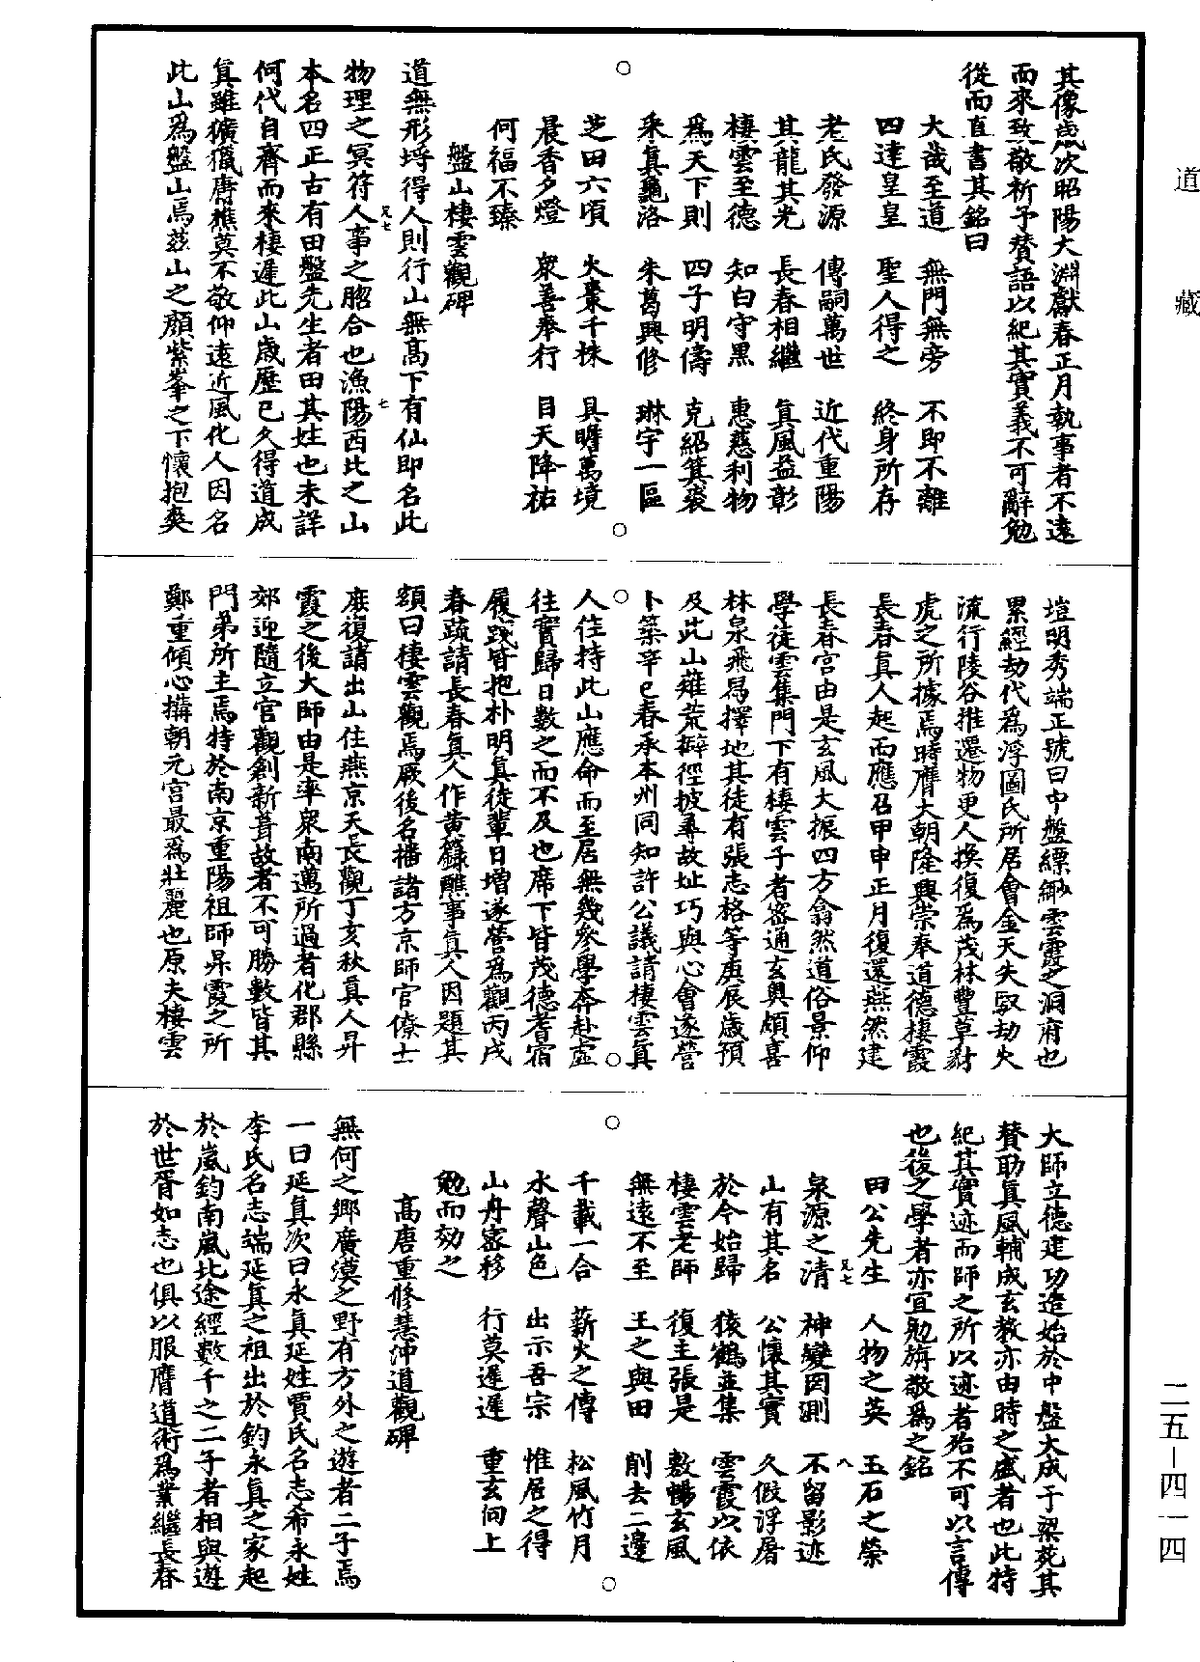 道藏
其像歲次昭陽大淵獻春正月執事者不遠
而來致敬祈予贊語以紀其實義不可辭勉
從而直書其銘曰
大哉至道 無門無旁 不即不離
四達皇皇 聖人得之 終身所存
老氏發源 傳嗣萬世 近代重陽
其龍其光 長春相繼 真風益彰
棲雲至德 知白守黑 惠慈利物
為天下則 四子明儔 克紹箕裘
采真龜洛 朱葛興修 琳宇一區
芝田六頃 火棗千株 具瞻萬境
晨香夕燈 衆善奉行 目天降祐
何福不臻
盤山棲雲觀碑
道無形埒得人則行山無高下有仙即名此
物理之冥符人事之脗合也漁陽西北之山
本名四正古有田盤先生者田其姓也未詳
何代自齊而來棲遲此山歲歷已久得道成
真雖獷獵庸樵莫不敬仰遠近風化人因名
此山為盤山焉茲山之顏紫峯之下懷抱爽
塏明秀端正號曰中盤縹緲雲霞之洞府也
累經劫代為浮圖氏所居會金天失馭劫火
流行陵谷推遷物更人換復為茂林豐草豺
虎之所據焉時膺大朝隆興崇奉道德棲霞
長春真人起而應召甲申正月復還燕然建
長春宮由是玄風大振四方翕然道俗景仰
學徒雲集門下有棲雲子者密通玄奧頗喜
林泉飛舄擇地其徒有張志格等庚辰歲預
及此山薙荒擗徑披尋故址巧與心會遂營
卜築辛巳春承本州同知許公議請棲雲真
人住持此山應命而至居無幾參學奔赴虛
往實歸日數之而不及也席下皆茂德耆宿
履踐皆抱朴明真徒輩日增遂營為觀丙戌
春疏請長春真人作黃籙醮事真人因題其
額曰棲雲觀焉厥後名播諸方京師官僚士
庶復請出山住燕京天長觀丁亥秋真人昇
霞之後大師由是率衆南邁所過者化郡縣
郊迎隨立官觀創新葺故者不可勝數皆其
門弟所主焉特於南京重陽祖師昇霞之所
鄭重傾心搆朝元宮最為壯麗也原夫棲雲
大師立德建功造始於中盤大成于梁苑其
贊助真風輔成玄教亦由時之盛者也此特
紀其實迹而師之所以迹者殆不可以言傳
也後之學者亦宜勉旃敬為之銘
田公先生 人物之英 玉石之榮
泉源之清 神變罔測 不留影迹
山有其名 公懷其實 久假浮屠
於今始歸 猿鶴並集 雲霞以依
棲雲老師 復主張是 敷暢玄風
無遠不至 王之與田 削去二邊
千載一合 薪火之傳 松風竹月
水聲山色 出示吾宗 惟居之得
山舟密移 行莫遲遲 重玄向上
勉而効之
高唐重修慧沖道觀碑
無何之鄉廣漠之野有方外之遊者二子焉
一曰延真次曰永真延姓賈氏名志希永姓
李氏名志端延真之祖出於鈞永真之家起
於嵐鈞南嵐北途經數千之二子者相與遊
於世胥如志也俱以服膺道術為業繼長春
二五—四一四